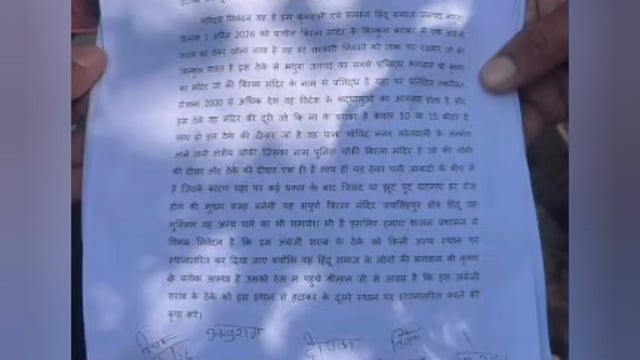 महोदय निवेदन यह है हम बृजवासी एवं समस्त हिंदू समाज जनपद मथुरा
1 अप्रैल 2026 को प्राचीन बिरला मंदिर के बिल्कुल बराबर में एक अंग्रेजी
शराब का ठेका खोला गया है यह भी सरकारी नियमों को ताक पर रखकर जो की
बिल्कुल गलत है इस ठेके से मथुरा जनपद का सबसे प्रसिद्ध भगवान श्री कृष्ण
का मंदिर जो की बिरला मंदिर के नाम से प्रसिद्ध है यहां पर प्रतिदिन
रोजाना 2000 से अधिक देश वह विदेश के श्रद्धालुओं का आगमन होता है
इस ठेके वह मंदिर की दूरी जो कि ना के बराबर है केवल 10 या 15 मीटर है
साथ ही इस ठेके की दीवार जो है वह थाना गोविंद नगर कोतवाली के अंतर्गत
आने वाली क्षेत्रीय चौकी जिसका नाम पुलिस चौकी बिरला मंदिर है जो की चौकी
की दीवार और ठेके की दीवार एक ही है साथ ही यह ठेका घनी आबादी के बीच में
है जिसके कारण यहां पर कई प्रकार के वाद विवाद या झुट पुट घटनाएं हर रोज
होने की मुख्य वजह बनेगी यह संपूर्ण बिरला मंदिर जयसिंहपुरा क्षेत्र हिंदू वह
मुस्लिम वह अन्य धर्म का भी समावेश भी है इसलिए हमारा शासन प्रशासन से
विनम्र निवेदन है कि इस अंग्रेजी शराब के ठेके को किसी अन्य स्थान पर
स्थानांतरित कर दिया जाए क्योंकि यह हिंदू समाज के लोगों की भगवान श्री कृष्ण
के प्रतीक आस्था है उसको ठेस न पहुंचे श्रीमान जी से आग्रह है कि इस अंग्रेजी
शराब के ठेके को इस स्थान से हटाकर के दूसरे स्थान पर स्थानांतरित करने की
कृपा करें।
अनुराग दीपक